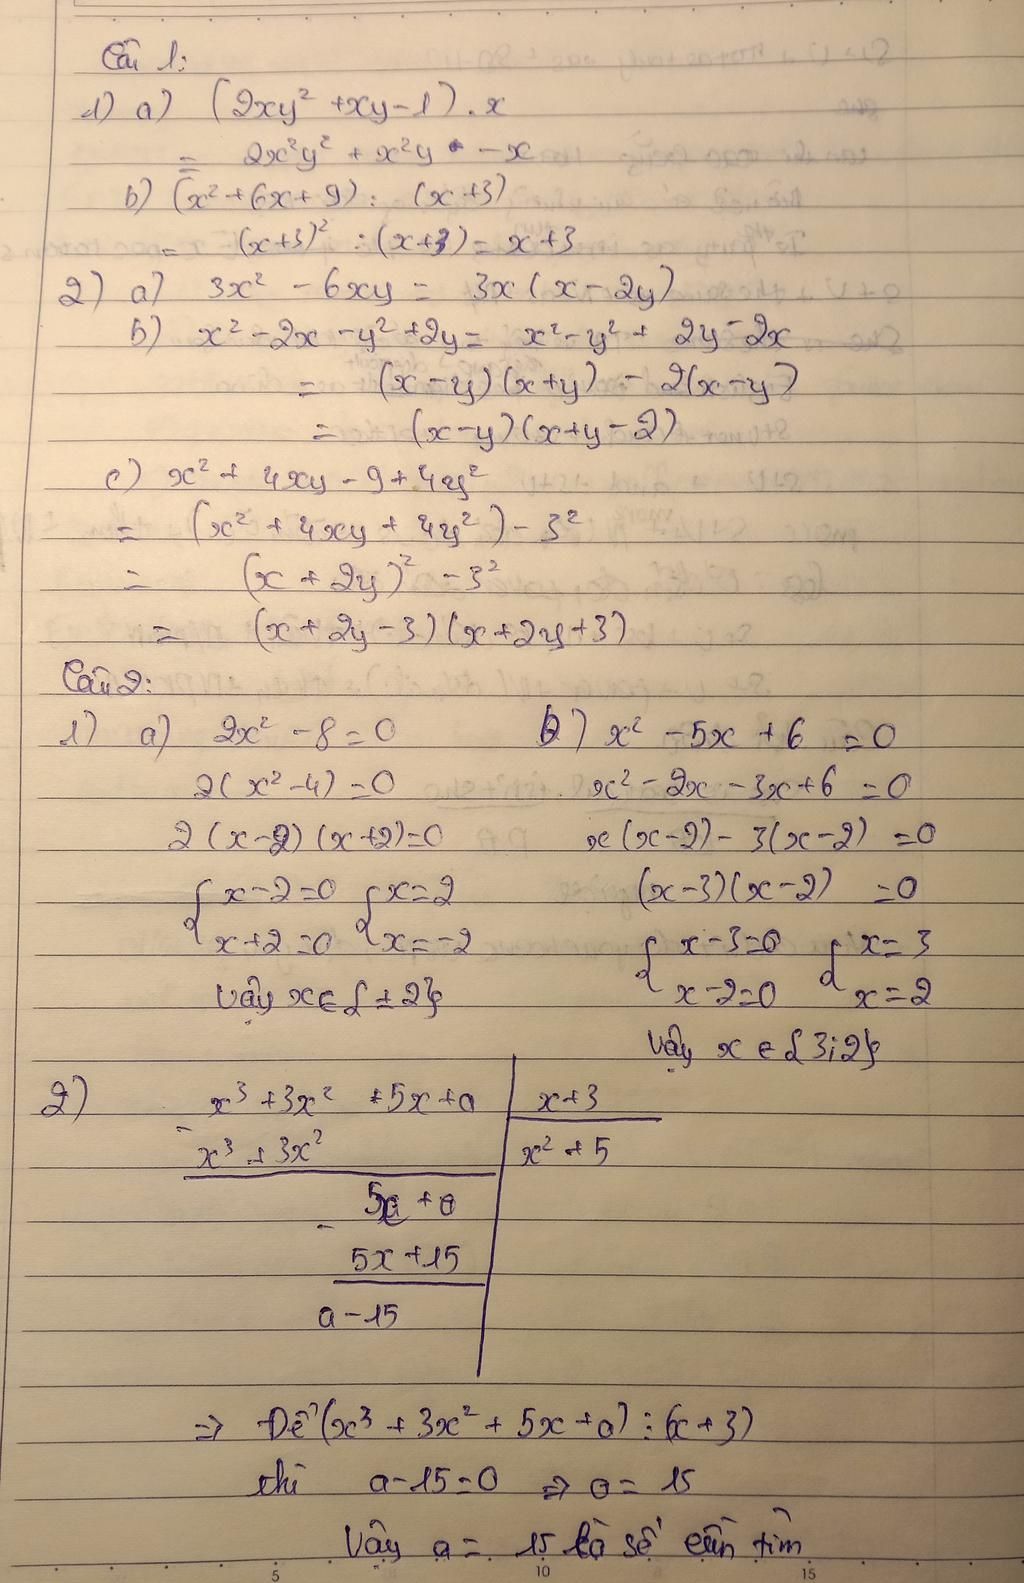 Câu 1:
1) a) (2xy² + xy - 1) . x
= 2x²y² + x²y - x
b) (x² + 6x + 9) : (x + 3)
= (x+3)² : (x+3) = x + 3
2) a) 3x² - 6xy = 3x (x - 2y)
b) x² - 2x - y² + 2y = x² - y² + 2y - 2x
= (x - y) (x + y) - 2(x - y)
= (x - y) (x + y - 2)
c) x² + 4xy - 9 + 4y²
= (x² + 4xy + 4y²) - 3²
= (x + 2y)² - 3²
= (x + 2y - 3) (x + 2y + 3)
Câu 2:
1) a) 2x² - 8 = 0
2(x² - 4) = 0
2 (x - 2) (x + 2) = 0
{ x - 2 = 0 { x = 2
x + 2 = 0 x = -2
Vậy x ∈ { ± 2 }
b) x² - 5x + 6 = 0
x² - 2x - 3x + 6 = 0
x (x - 2) - 3(x - 2) = 0
(x - 3) (x - 2) = 0
{ x - 3 = 0 { x = 3
x - 2 = 0 x = 2
Vậy x ∈ { 3; 2 }
2) x³ + 3x² + 5x + a | x + 3
- x³ + 3x² | x² + 5
5x + a
- 5x + 15
a - 15
⇒ Để (x³ + 3x² + 5x + a) ⋮ (x + 3)
thì a - 15 = 0 ⇒ a = 15
Vậy a = 15 là số cần tìm
5 10 15